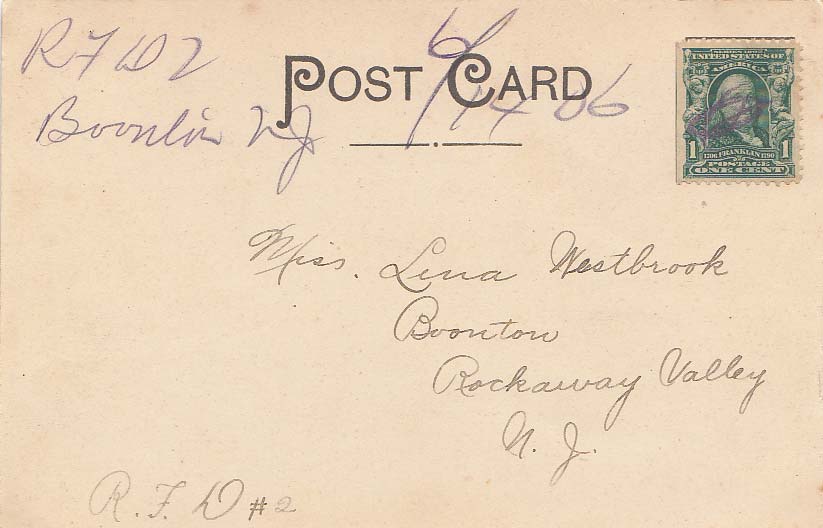 R F D 2
Boonton NJ
6/14 06
POST CARD
SERIES 1902
UNITED STATES OF
AMERICA
1 1
1706 FRANKLIN 1790
POSTAGE
ONE CENT
Miss. Lena Westbrook
Boonton
Rockaway Valley
N. J.
R. F. D #2